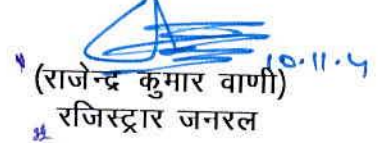 10.11.4
(राजेन्द्र कुमार वाणी)
रजिस्ट्रार जनरल